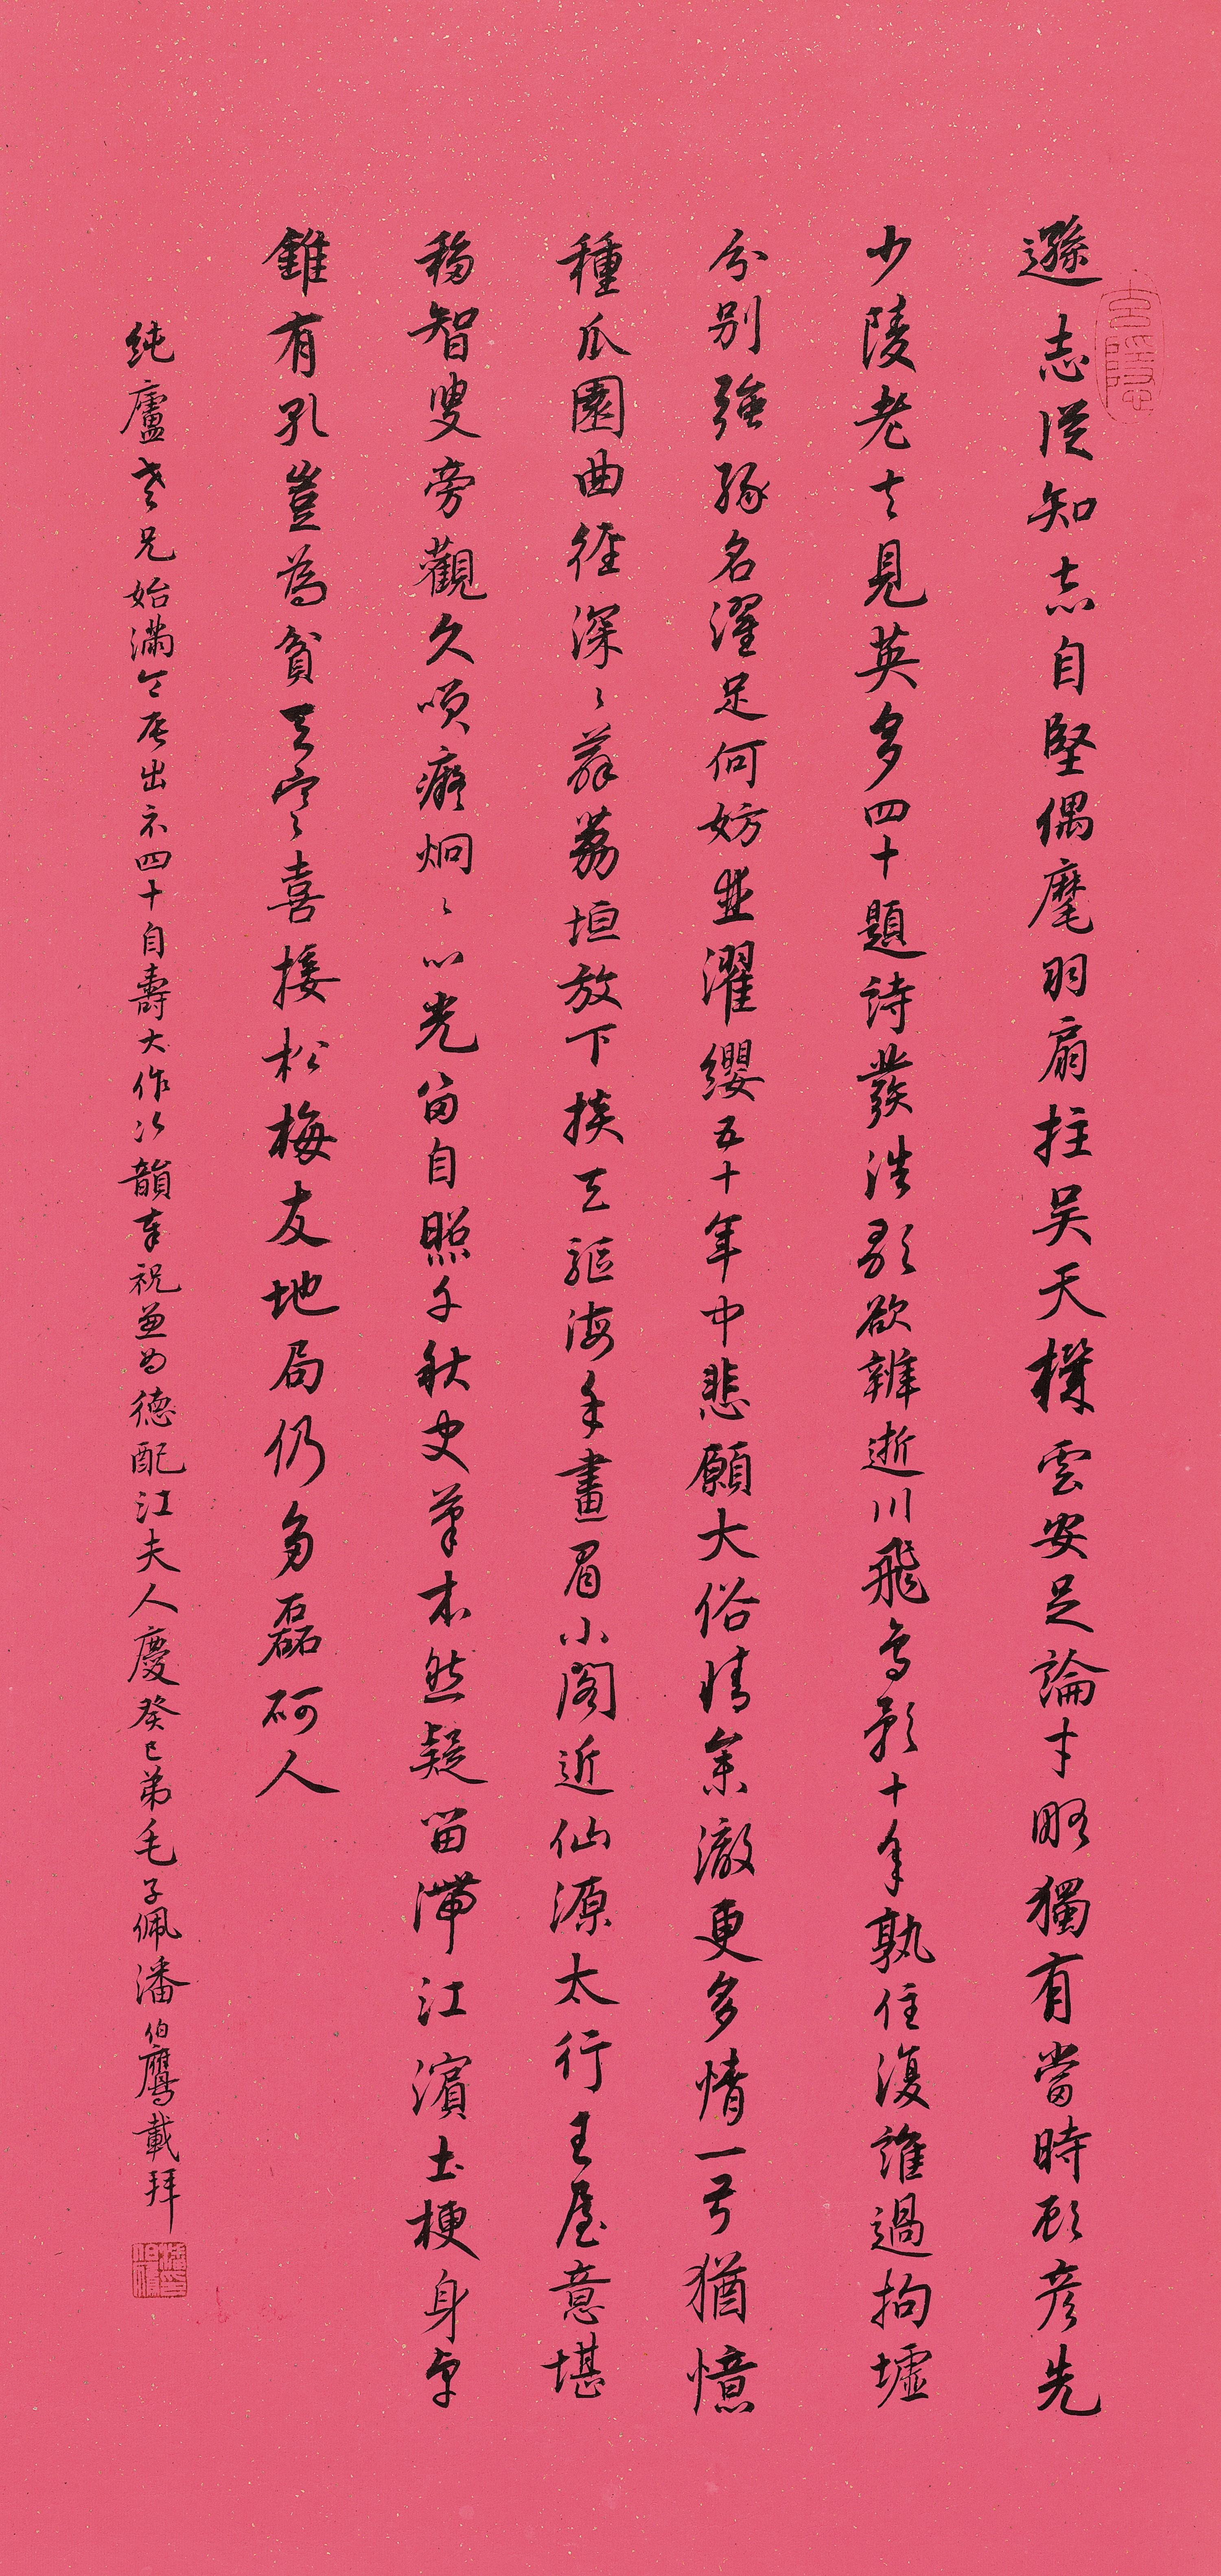 遜志從知志自堅偶麾羽扇拄吳天撲雲安足論才略獨有當時顧彥先
少陵老去見英多四十題詩發浩歌欲辨逝川飛鳥影十年孰住復誰過拘墟
分別強騖名濯足何妨並濯纓五十年中悲願大俗情余澈更多情一弓猶憶
種瓜園曲徑深深薜荔垣放下揆天驅海手畫眉小閣近仙源太行王屋意堪
移智叟旁觀久哂癡炯炯心光留自照千秋史筆本然疑留滯江濱土梗身卓
錐有孔豈為貧天寒喜接松梅友地局仍多磊砢人
純廬老兄始滿今辰出示四十自壽大作次韻奉祝並為德配江夫人慶癸巳弟毛子佩潘伯鷹載拜